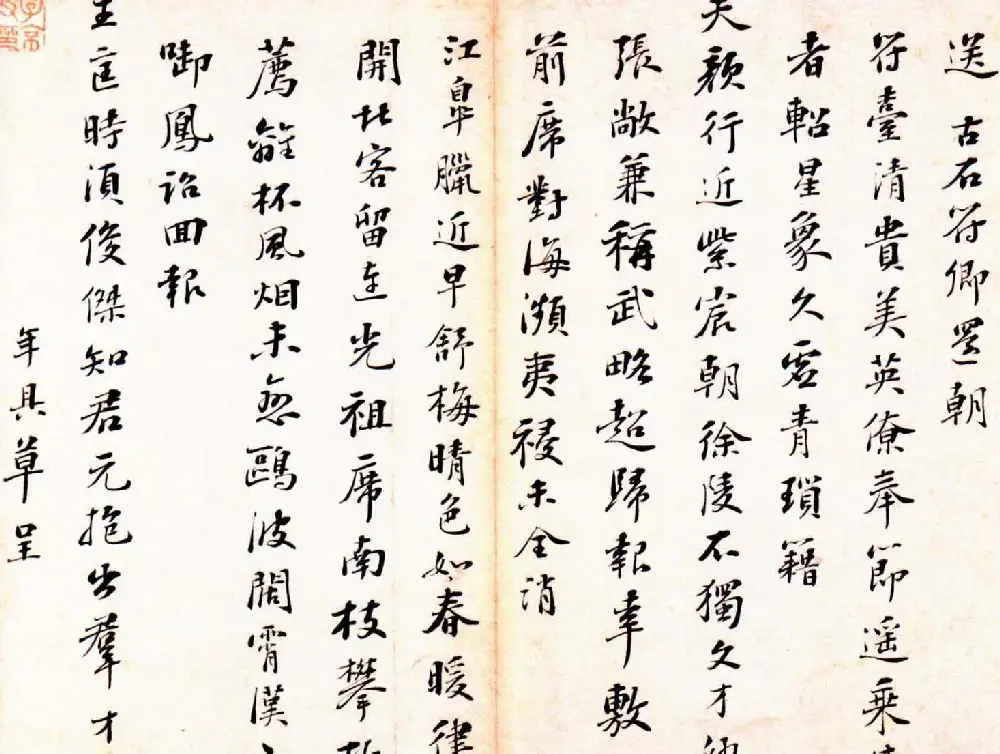 送 古石符卿還朝
符臺清貴美英僚奉節遥乘
者軺星象久虚青瑣籍
天顔行近紫宸朝徐陵不獨文才
張敞兼稱武略超歸報幸敷
前席對海瀕夷祲未全消
江臯臘近早舒梅晴色如春暖律
開北客留連光祖席南枝攀
薦離杯風烟未愁鷗波闊霄漢
啣鳳詔回報
主匡時須俊傑知君元抱出羣才
年具草呈